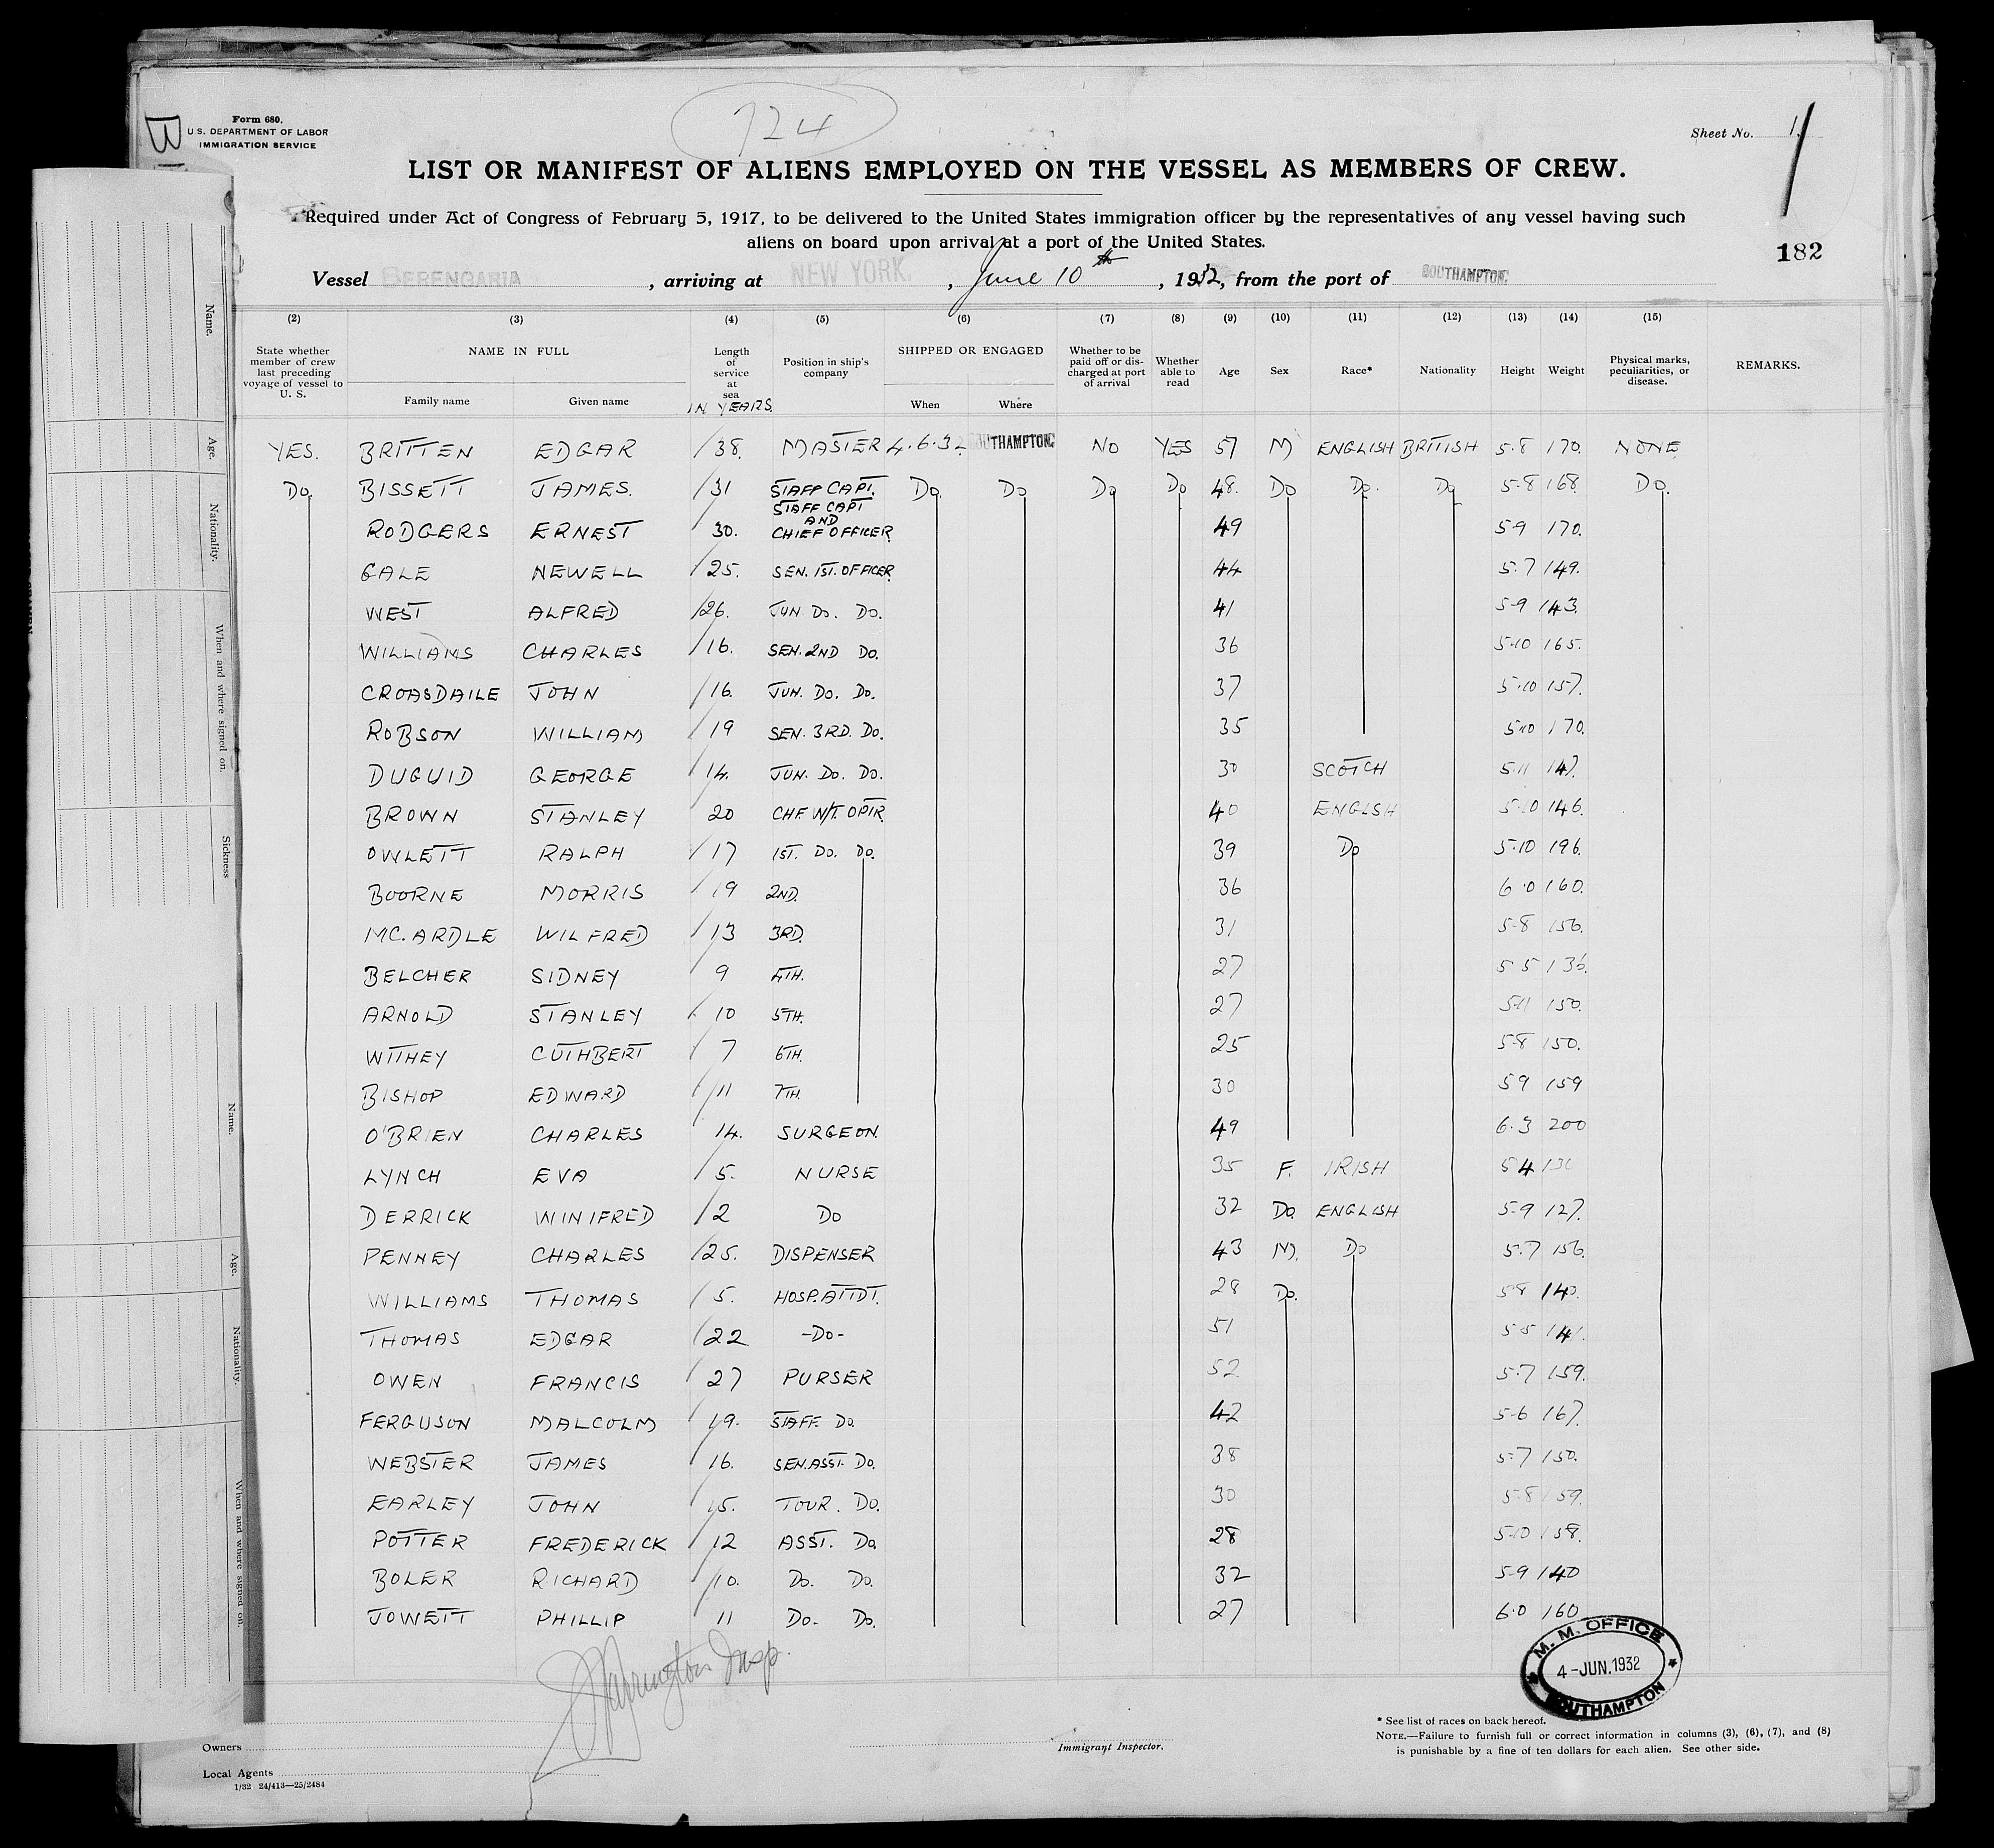 Form 680.
U.S. DEPARTMENT OF LABOR
IMMIGRATION SERVICE
724
Sheet No. 1
LIST OR MANIFEST OF ALIENS EMPLOYED ON THE VESSEL AS MEMBERS OF CREW.
Required under Act of Congress of February 5, 1917, to be delivered to the United States immigration officer by the representatives of any vessel having such
aliens on board upon arrival at a port of the United States.
182
Vessel BERENGARIA, arriving at NEW YORK, June 10th, 1932, from the port of SOUTHAMPTON.
(2) (3) (4) (5) (6) (7) (8) (9) (10) (11) (12) (13) (14) (15)
State whether member of crew last preceding voyage of vessel to U. S.
NAME IN FULL
Family name Given name
Length of service at sea IN YEARS.
Position in ship's company
SHIPPED OR ENGAGED
When Where
Whether to be paid off or discharged at port of arrival
Whether able to read
Age Sex Race* Nationality Height Weight
Physical marks, peculiarities, or disease.
REMARKS.
YES. BRITTEN EDGAR 38. MASTER 4.6.32 SOUTHAMPTON. NO YES 57 M ENGLISH BRITISH 5.8 170. NONE
Do. BISSETT JAMES. 31 STAFF CAPT. Do Do Do Do 48. Do Do. Do 5-8 168. Do.
RODGERS ERNEST 30. STAFF CAPT AND CHIEF OFFICER 49 5-9 170.
GALE NEWELL 25. SEN. 1ST. OFFICER 44 5.7 149.
WEST ALFRED 26. JUN Do. Do. 41 5-9 143.
WILLIAMS CHARLES 16. SEN. 2ND Do. 36 5-10 165.
CROASDAILE JOHN 16. JUN. Do. Do. 37 5.10 157.
ROBSON WILLIAM 19 SEN. 3RD. Do. 35 5-10 170.
DUGUID GEORGE 14. JUN. Do. Do. 30 SCOTCH 5.11 147.
BROWN STANLEY 20 CHF W/T. OPTR. 40 ENGLSH 5.10 146.
OWLETT RALPH 17 1ST. Do. Do. 39 Do 5.10 196.
BOORNE MORRIS 19 2ND. 36 6.0 160.
MC.ARDLE WILFRED 13 3RD. 31 5-8 156.
BELCHER SIDNEY 9 4TH. 27 5 5 136.
ARNOLD STANLEY 10 5TH. 27 5-11 150.
WITHEY CUTHBERT 7 6TH. 25 5-8 150.
BISHOP EDWARD 11 7TH. 30 5 9 159
O'BRIEN CHARLES 14. SURGEON. 49 6.3 200
LYNCH EVA 5. NURSE 35 F. IRISH 5 4
DERRICK WINIFRED 2 Do 32 Do. ENGLISH 5-9 127.
PENNEY CHARLES 25. DISPENSER 43 M. Do 5.7 156.
WILLIAMS THOMAS 5. HOSP. ATTDT. 28 Do. 5 8 140.
THOMAS EDGAR 22 -Do- 51 5-5 141.
OWEN FRANCIS 27 PURSER 52 5.7 159.
FERGUSON MALCOLM 19. STAFF. Do 42 5-6 167.
WEBSTER JAMES 16. SEN. ASST. Do. 38 5-7 150.
EARLEY JOHN 15. TOUR. Do. 30 5.8 159.
POTTER FREDERICK 12 ASST. Do 28 5-10 158.
BOLER RICHARD 10. Do. Do. 32 5-9 140
JOWETT PHILLIP 11 Do- Do. 27 6.0 160
M. M. OFFICE
4-JUN.1932
SOUTHAMPTON
Owners
Local Agents
1/32 24/413—25/2484
Immigrant Inspector.
* See list of races on back hereof.
NOTE.—Failure to furnish full or correct information in columns (3), (6), (7), and (8)
is punishable by a fine of ten dollars for each alien. See other side.
Name.
Age.
Nationality.
When and where signed on.
Sickness
Name.
Age.
Nationality.
When and where signed on.